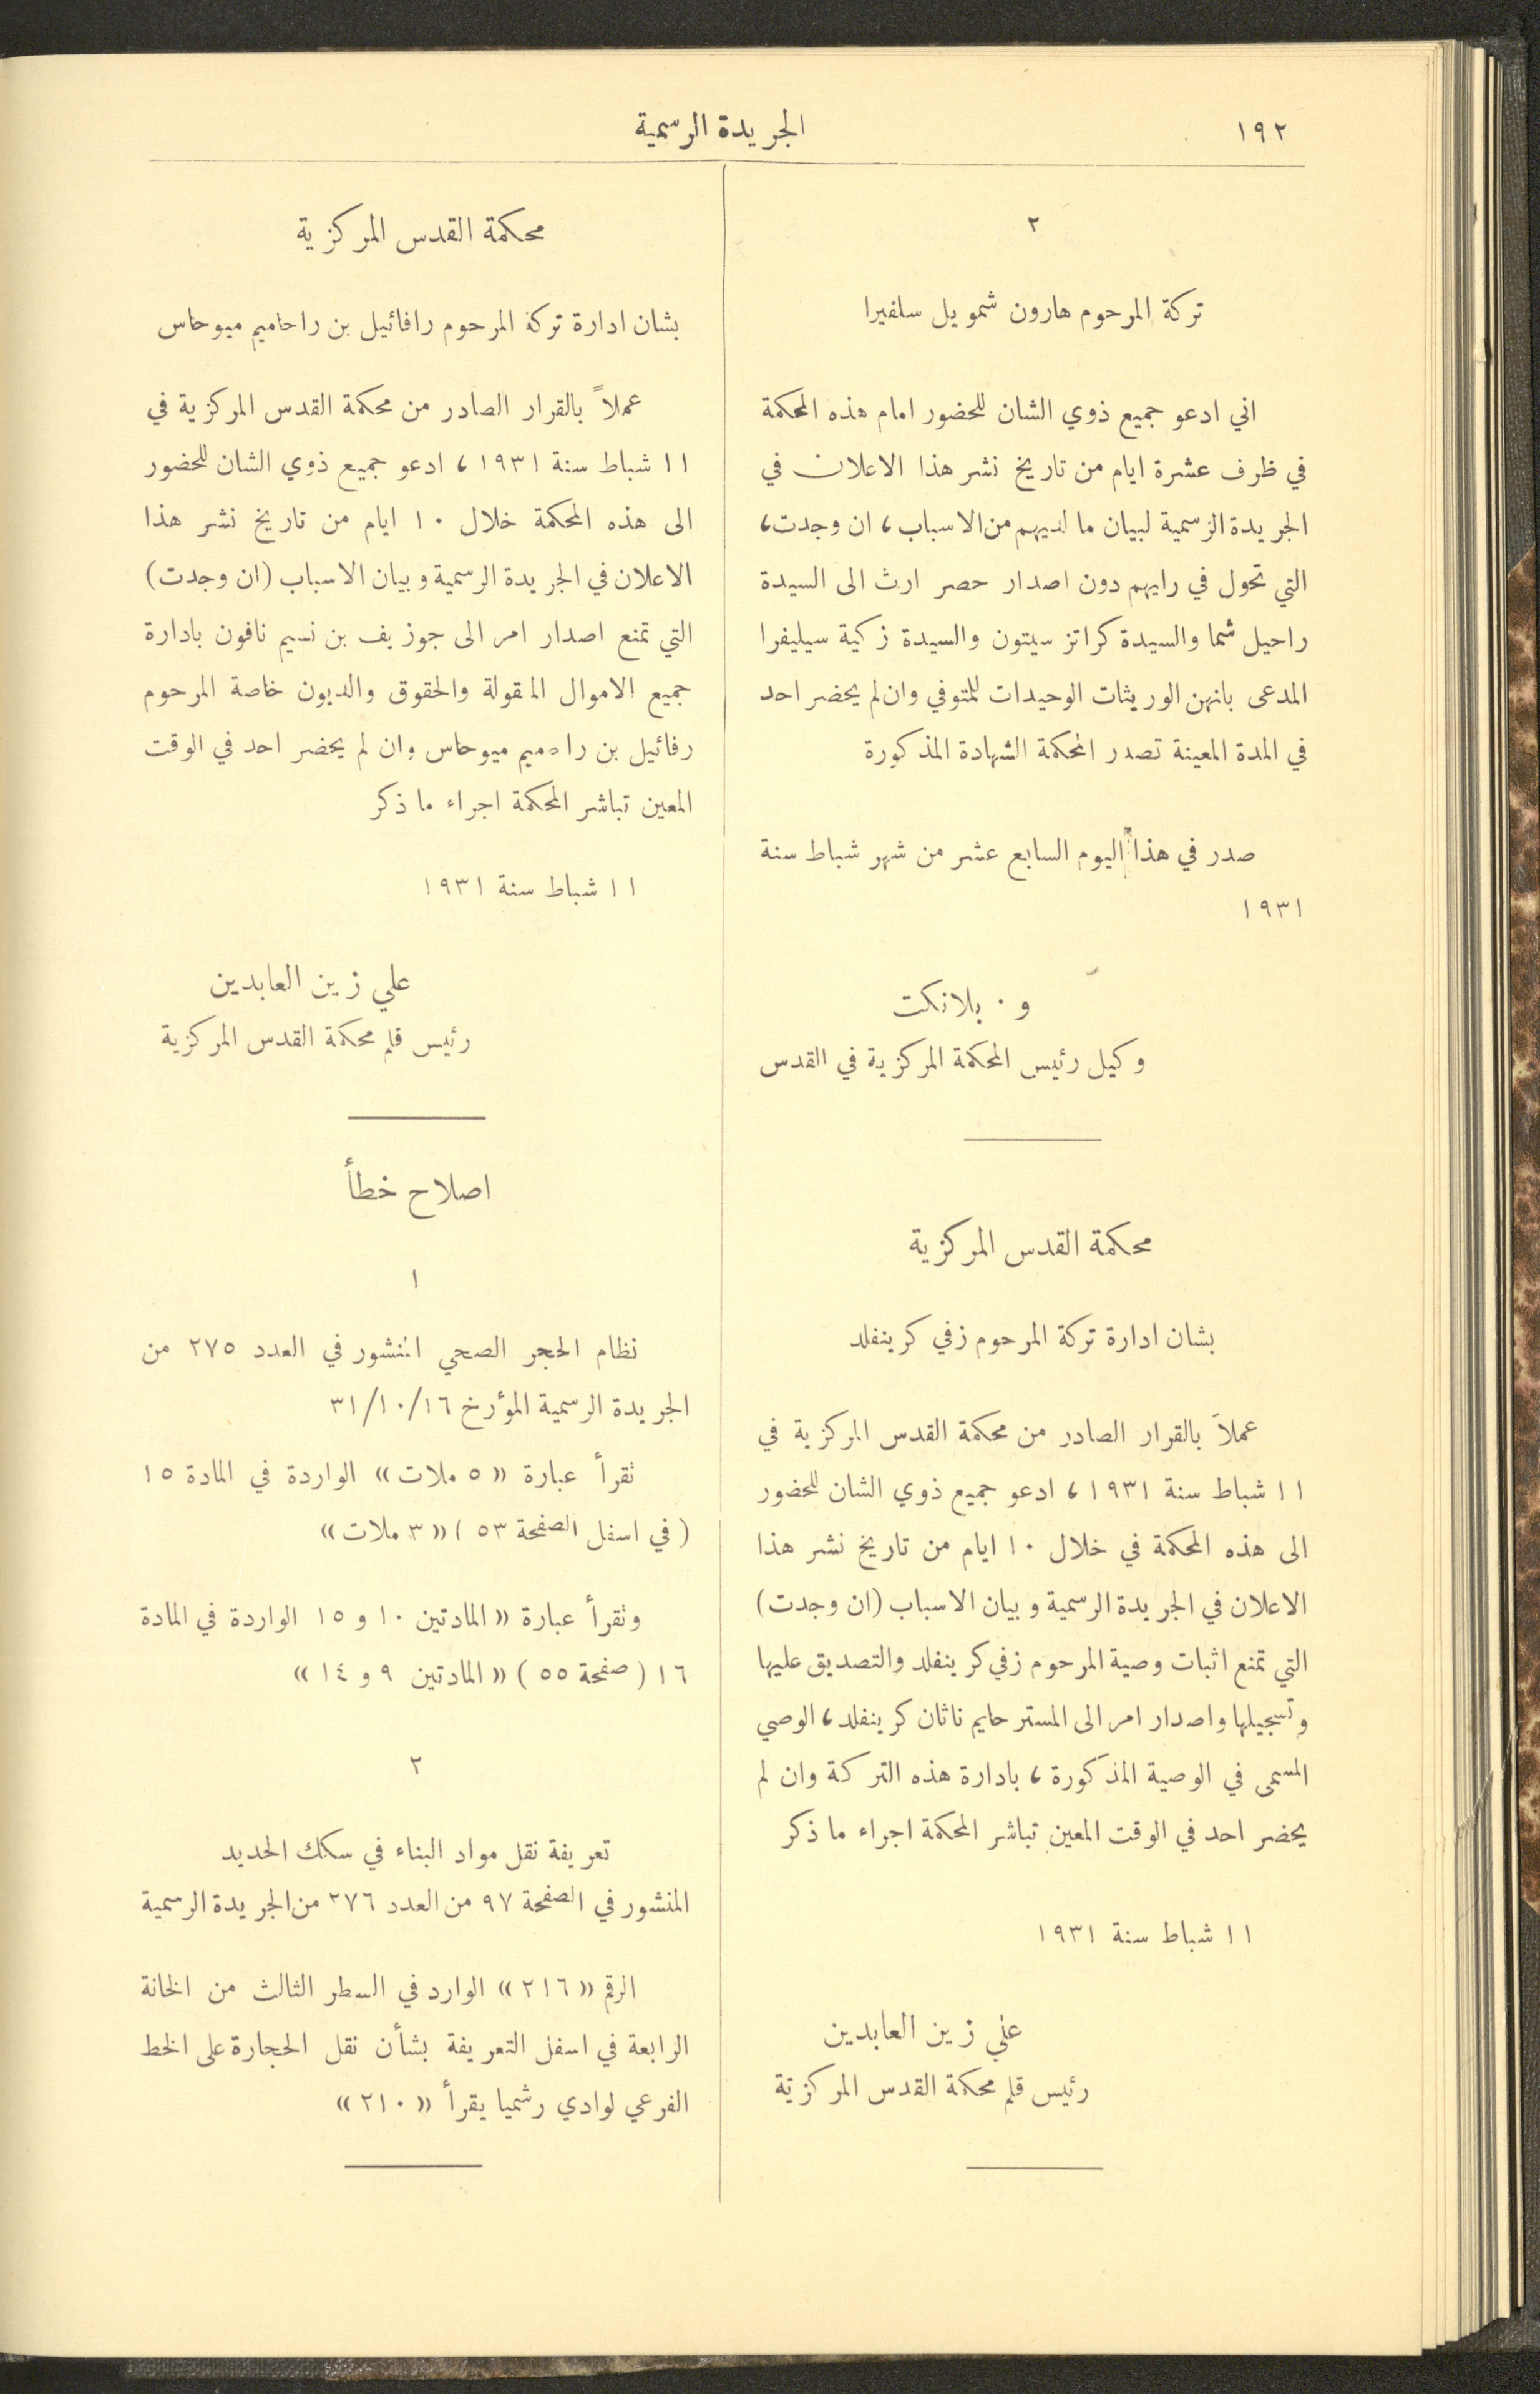 ١٩٢
الجريدة الرسمية
٢
تركة المرحوم هارون شمويل سلفيرا
اني ادعو جميع ذوي الشان للحضور امام هذه المحكمة
في ظرف عشرة ايام من تاريخ نشر هذا الاعلان في
الجريدة الرسمية لبيان ما لديهم من الاسباب، ان وجدت،
التي تحول في رايهم دون اصدار حصر ارث الى السيدة
راحيل شما والسيدة كراتز سيتون والسيدة زكية سيليفرا
المدعى بانهن الوريثات الوحيدات للمتوفي وان لم يحضر احد
في المدة المعينة تصدر المحكمة الشهادة المذكورة
صدر في هذا اليوم السابع عشر من شهر شباط سنة
١٩٣١
و. بلانكت
وكيل رئيس المحكمة المركزية في القدس
محكمة القدس المركزية
بشان ادارة تركة المرحوم زفي كرينفلد
عملاً بالقرار الصادر من محكمة القدس المركزية في
١١ شباط سنة ١٩٣١، ادعو جميع ذوي الشان للحضور
الى هذه المحكمة في خلال ١٠ ايام من تاريخ نشر هذا
الاعلان في الجريدة الرسمية وبيان الاسباب (ان وجدت)
التي تمنع اثبات وصية المرحوم زفي كرينفلد والتصديق عليها
وتسجيلها واصدار امر الى المستر حايم ناثان كرينفلد، الوصي
المسمى في الوصية المذكورة، بادارة هذه التركة وان لم
يحضر احد في الوقت المعين تباشر المحكمة اجراء ما ذكر
١١ شباط سنة ١٩٣١
علي زين العابدين
رئيس قلم محكمة القدس المركزية
محكمة القدس المركزية
بشان ادارة تركة المرحوم رافائيل بن راحاميم ميوحاس
عملاً بالقرار الصادر من محكمة القدس المركزية في
١١ شباط سنة ١٩٣١، ادعو جميع ذوي الشان للحضور
الى هذه المحكمة خلال ١٠ ايام من تاريخ نشر هذا
الاعلان في الجريدة الرسمية وبيان الاسباب (ان وجدت)
التي تمنع اصدار امر الى جوزيف بن نسيم نافون بادارة
جميع الاموال المقولة والحقوق والديون خاصة المرحوم
رفائيل بن ميوحاس وان لم يحضر احد في الوقت
المعين تباشر المحكمة اجراء ما ذكر
١١ شباط سنة ١٩٣١
علي زين العابدين
رئيس قلم محكمة القدس المركزية
اصلاح خطأ
١
نظام الحجر الصحي المنشور في العدد ٢٧٥ من
الجريدة الرسمية المؤرخ ٣١/١٠/١٦
تقرأ عبارة «٥ ملات» الواردة في المادة ١٥
(في اسفل الصفحة ٥٣) «٣ ملات»
وتقرأ عبارة «المادتين ١٠ و ١٥ الواردة في المادة
١٦ (صفحة ٥٥) «المادتين ٩ و ١٤»
٢
تعريفة نقل مواد البناء في سكك الحديد
المنشور في الصفحة ٩٧ من العدد ٢٧٦ من الجريدة الرسمية
الرقم «٢١٦» الوارد في السطر الثالث من الخانة
الرابعة في اسفل التعريفة بشأن نقل الحجارة على الخط
الفرعي لوادي رشميا يقرأ «٢١٠»